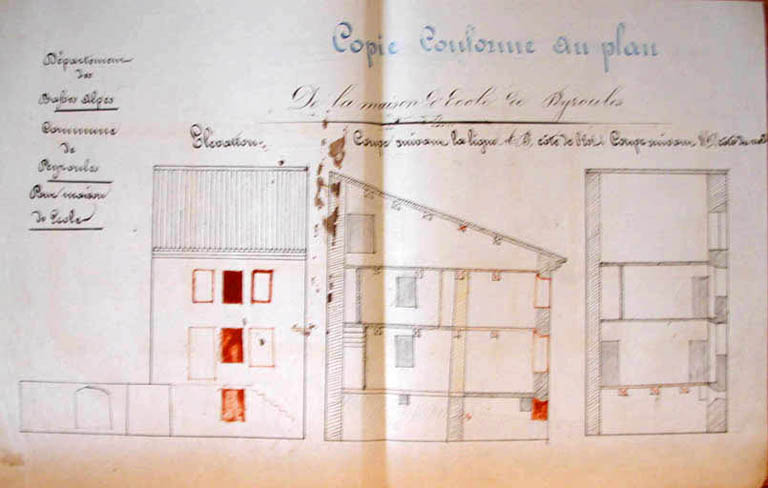 Copie Conforme au plan
De la maison d'Ecole de Peyroules
Département
des
Basses Alpes
Commune
de
Peyroules
Pour maison
de Ecole
Elévation
Coupe suivant la ligne A B, côté de l'Est
Coupe suivant côté du